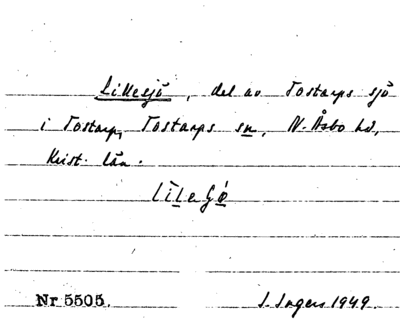 Lillesjö, del av Tostarps sjö
i Tostarp, Tostarps sn, N. Åsbo hd,
Krist. län.
Nr 5505. I. Ingers 1949.